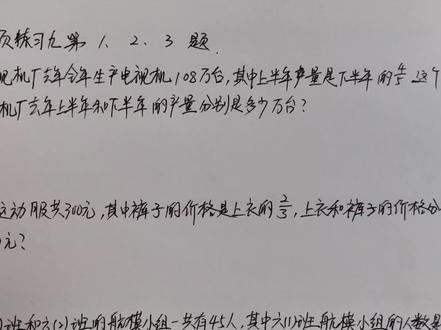 练习九第 1、2、3 题.
机厂去年全年生产电视机108万台,其中上半年产量是下半年的4/5 这个
机厂去年上半年和下半年的产量分别是多少万台?
运动服共300元,其中裤子的价格是上衣的2/3,上衣和裤子的价格分
元?
班和六(2)班的航模小组一共有45人,其中六(1)班航模小组的人数是